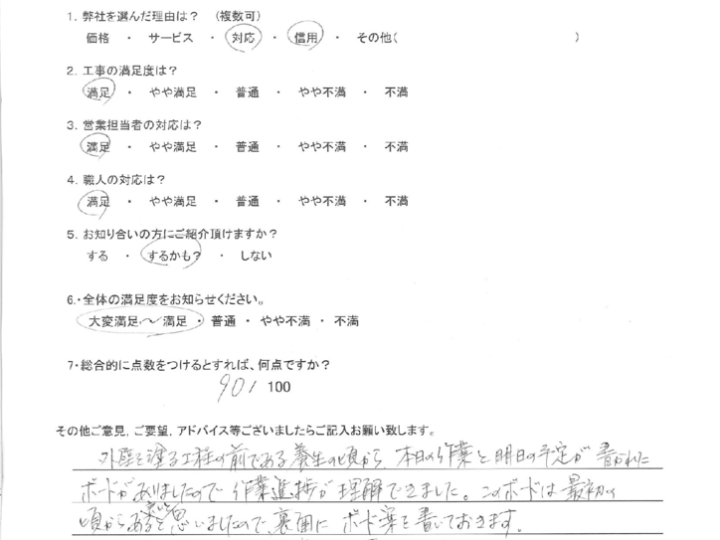 1. 弊社を選んだ理由は？ （複数可）
価格 ・ サービス ・ 対応 ・ 信用 ・ その他（ ）
2. 工事の満足度は？
満足 ・ やや満足 ・ 普通 ・ やや不満 ・ 不満
3. 営業担当者の対応は？
満足 ・ やや満足 ・ 普通 ・ やや不満 ・ 不満
4. 職人の対応は？
満足 ・ やや満足 ・ 普通 ・ やや不満 ・ 不満
5. お知り合いの方にご紹介頂けますか？
する ・ するかも？ ・ しない
6.・全体の満足度をお知らせください。
大変満足～満足 ・ 普通 ・ やや不満 ・ 不満
7・総合的に点数をつけるとすれば、何点ですか？
90/ 100
その他ご意見, ご要望, アドバイス等ございましたらご記入お願い致します。
外壁を塗る工程の前である養生の頃から、本日の作業と明日の予定が書かれた
ボードがありましたので作業進捗が理解できました。このボードは最初の
頃からあると良いと思いましたので、裏面にボード案を書いておきます。